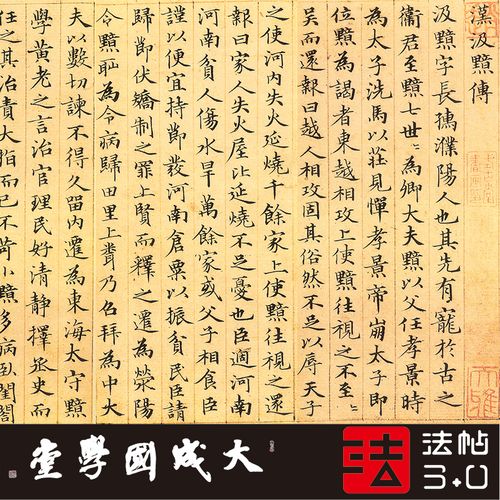 漢汲黯傳
汲黯字長孺濮陽人也其先有寵於古之
衛君至黯七世〻為卿大夫黯以父任孝景時
為太子洗馬以莊見憚孝景帝崩太子即
位黯為謁者東越相攻上使黯往視之不至〻
吳而還報曰越人相攻固其俗然不足以辱天子
之使河內失火延燒千餘家上使黯往視之還
報曰家人失火屋比延燒不足憂也臣適河南
河南貧人傷水旱萬餘家或父子相食臣
謹以便宜持節發河南倉粟以振貧民臣請
歸節伏矯制之罪上賢而釋之遷為滎陽
令黯恥為令病歸田里上乃召拜為中大
夫以數切諫不得久留內遷為東海太守黯
學黃老之言治官理民好清靜擇丞史而
任之其治責大指而已不苛小黯多病臥閨閤
大成國學堂
法
法帖
3.0